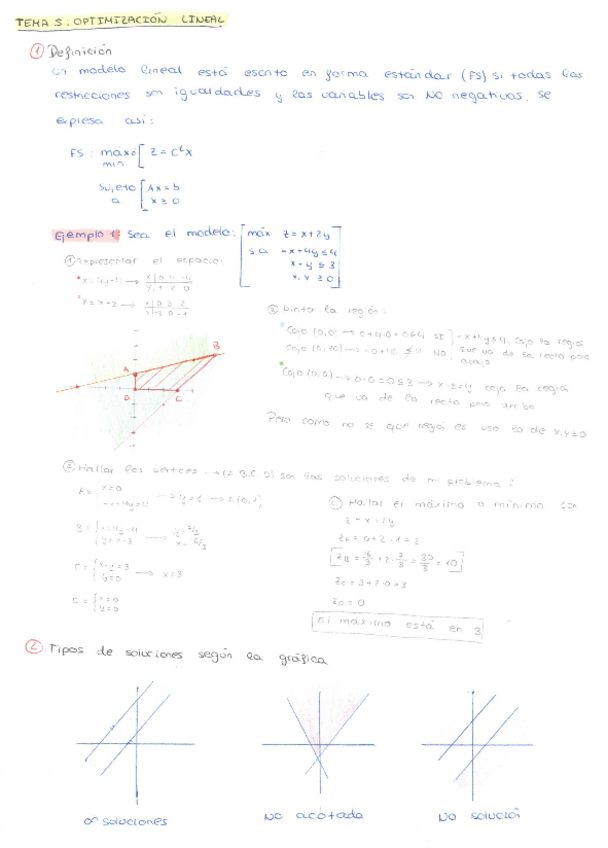 TEMA 5. OPTIMIZACIÓN LINEAL
① Definición
Un modelo lineal está escrito en forma estándar (FS) si todas las
restricciones son igualdades y las variables son NO negativas. Se
expresa así:
FS: máx ó [ Z = Cᵗx
min
Sujeto [ Ax = b
a [ x ≥ 0
Ejemplo 1: Sea el modelo: [ máx Z = x+2y
s a -x+4y ≤ 4
x-y ≤ 3
x, y ≥ 0
① Representar el espacio:
② Pinto la región:
Cojo (0,0)
cojo la región
que va de la recta para
abajo
Cojo (0,0) → 0-0=0≤3 → cojo la región
que va de la recta para arriba
Pero como no se que región es uso la de x,y≥0
A
B
C
D
③ Hallar los vértices → (A,B,C,D) son las soluciones de mi problema:
A = { x=0
→ A(0,1)
B = { x=4y-4
y=x-3
C = { x-y=3
y=0 → x=3
D = { x=0
y=0
④ Hallar el máximo o mínimo con
Z = x+2y
Z_A = 0+2·1=2
Z_B = 16/3 + 2·7/3 = 30/3 = 10
Z_C = 3+2·0=3
Z_D = 0
El máximo está en B
② Tipos de soluciones según la gráfica
∞ soluciones
NO acotada
NO solución